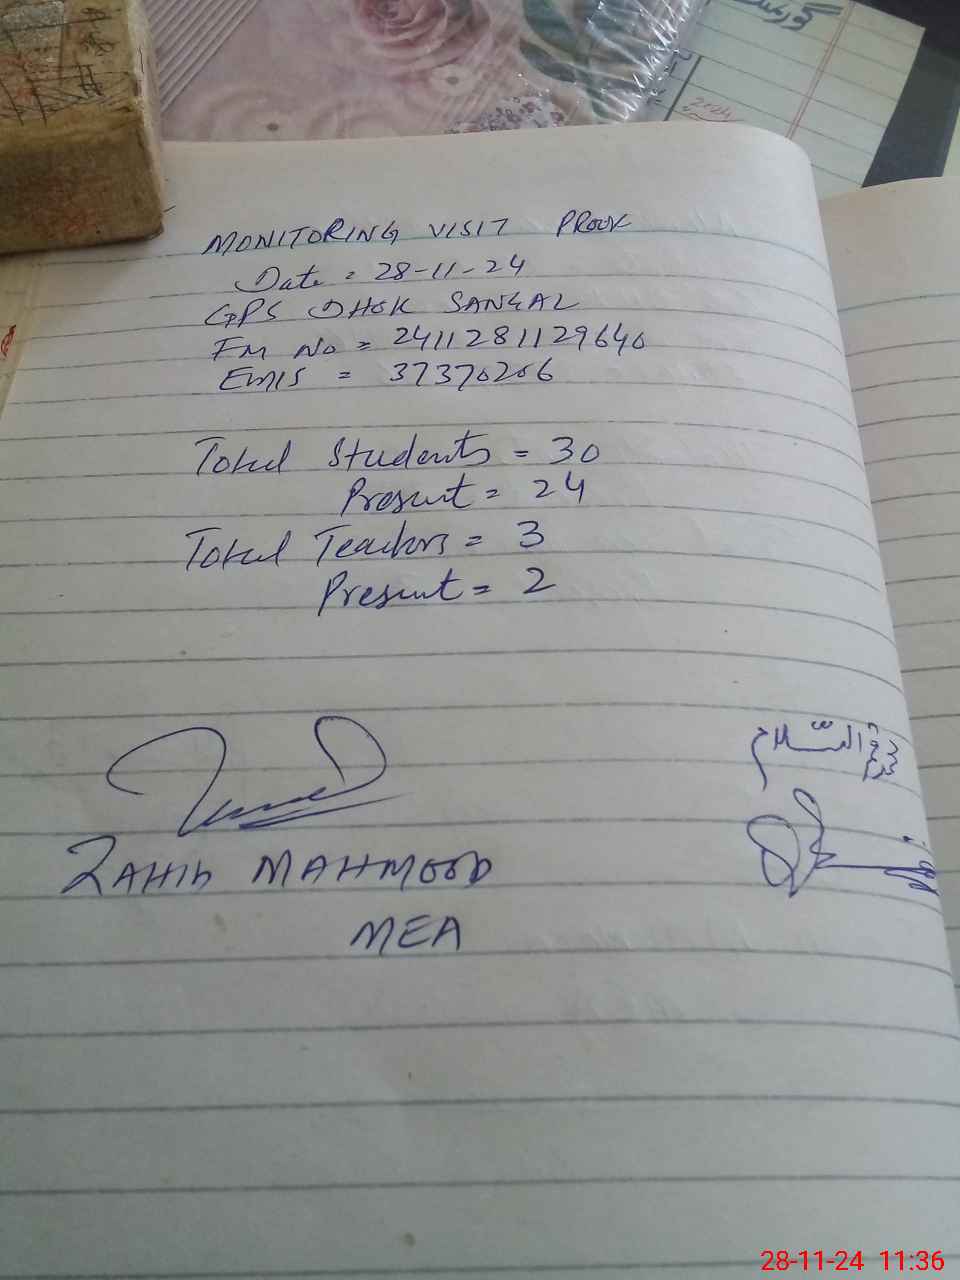 گورنمنٹ
MONITORING VISIT PROOF
Date = 28-11-24
GPS DHOK SANGAL
FM No = 2411281129640
EMIS = 37370206
Total Students = 30
Present = 24
Total Teachers = 3
Present = 2
قرۃ السلام
ZAHID MAHMOOD
MEA
28-11-24 11:36